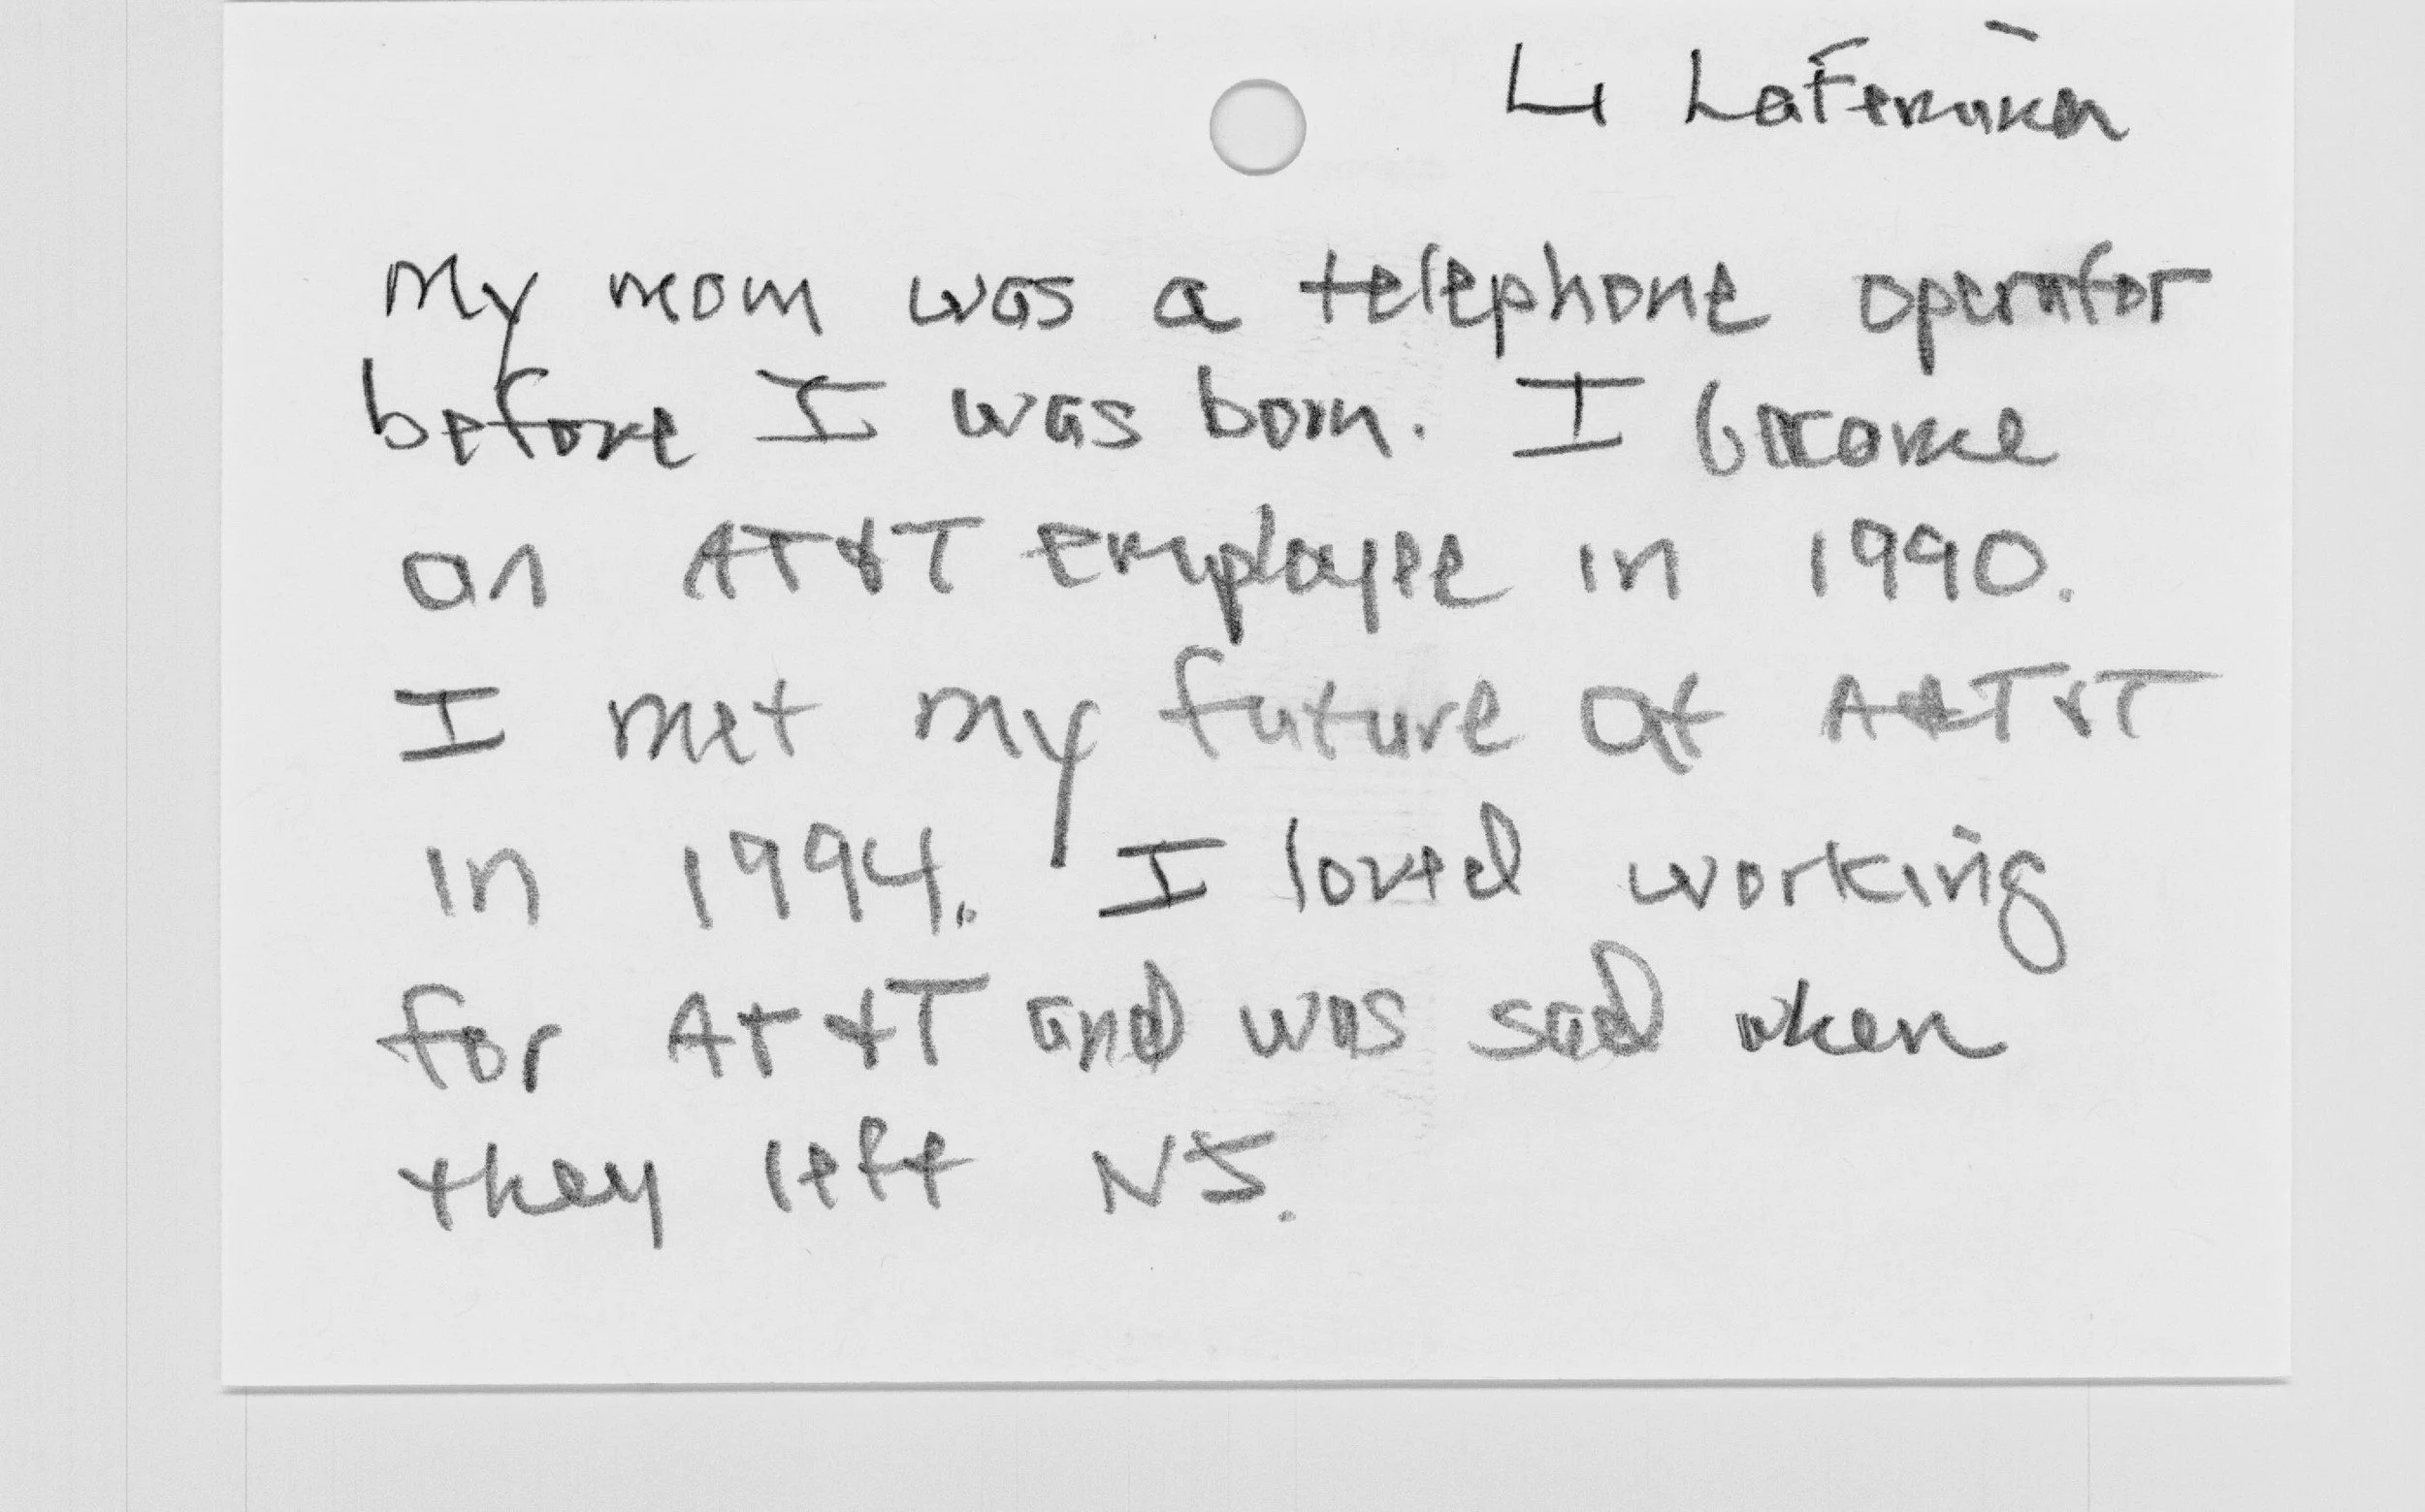 My mom was a telephone operator
before I was born. I become
an AT&T Employee in 1990.
I met my future at AT&T
in 1994. I loved working
for AT&T and was sad when
they left NJ.